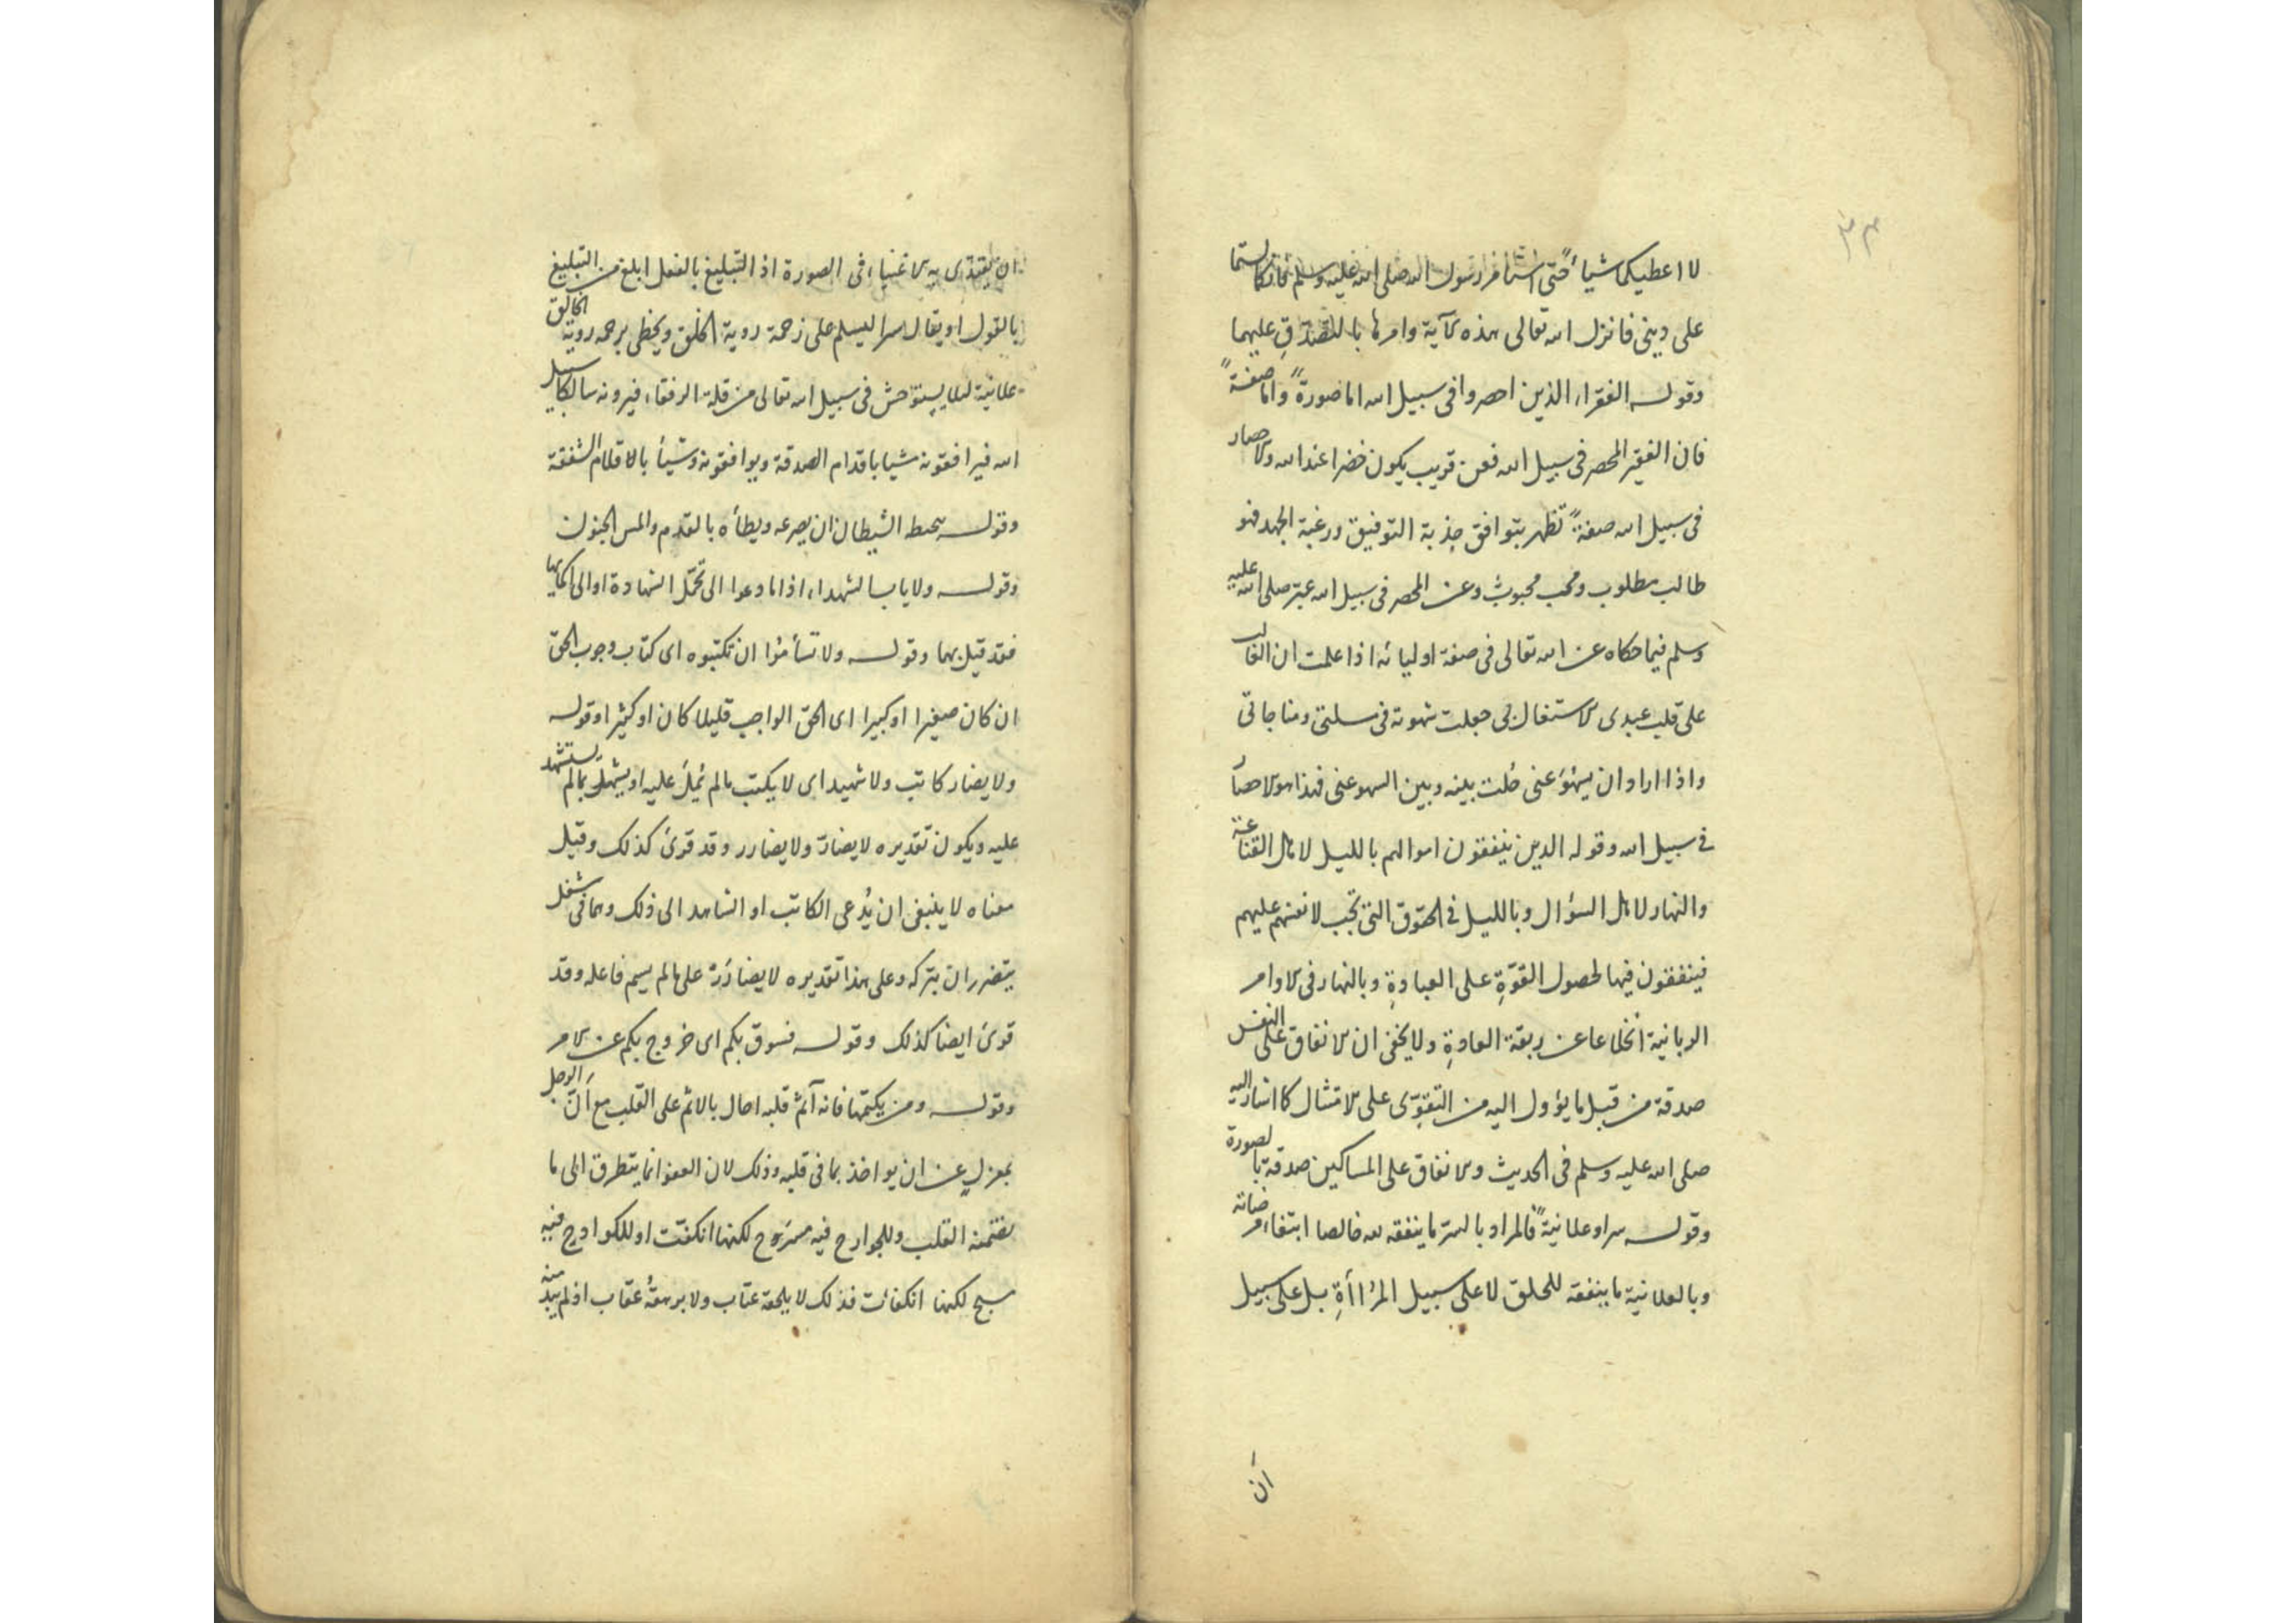 ٣٣
لا اعطيكما شيأ حتى استأمر رسول الله صلى الله عليه وسلم فانكما لستما
على دينى فانزل الله تعالى هذه الآية وامرها بالتصدق عليهما
وقوله الفقراء الذين احصروا فى سبيل الله اما صورةً واما صفةً
فان الفقير المحصر فى سبيل الله فعن قريب يكون خضرا عند الله والاحصار
فى سبيل الله صفةً تظهر بتوافق جذبة التوفيق ورغبة الجهد فهو
طالب مطلوب ومحب محبوب وعن المحصر فى سبيل الله عبر صلى الله عليه
وسلم فيما حكاه عن الله تعالى فى صفة اوليائه اذا علمت ان الغالب
على قلب عبدى الاشتغال بى جعلت شهوته فى مسئلتى ومناجاتى
واذا اراد ان يسهو عنى حُلت بينه وبين السهو عنى فهذا هو الاحصار
فى سبيل الله وقوله الذين ينفقون اموالهم بالليل لاهل القناعة
والنهار لاهل السؤال وبالليل فى الحقوق التى تجب لانفسهم عليهم
فينفقون فيها لحصول القوّةِ على العبادةِ وبالنهار فى الاوامر
الربانية انخلاعا عن ربقة العادةِ ولا يخفى ان الانفاق على النفس
صدقة من قبل ما يؤول اليه من التقوّى على الامتثال كما اشار اليه
صلى الله عليه وسلم فى الحديث والانفاق على المساكين صدقة بالصورة
وقوله سرا وعلانيةً فالمراد بالسر ما ينفقه لله خالصا ابتغاء مرضاته
وبالعلانية ما ينفقه للخلق لا على سبيل المرُاأةِ بل على سبيل
ان
ان يقتدى به الاغنياء فى الصورة اذ التبليغ بالفعل ابلغ من التبليغ
بالقول او يقال سرا ليسلم على زحمة روية الخلق ويحظى برحمه روية الخالق
علانية لئلا يستوحش فى سبيل الله تعالى من قلة الرفقاء فيرونه سالكا سبيل
الله فيرافقونه شيا باقدام الصدقة ويوافقونه وشيأ بالاقلام الشفقة
وقوله يتخبطه الشيطان ان يصرعه ويطأه بالقدم والمس الجنون
وقوله ولا ياب الشهداء اذا ما دعوا الى تحمّل الشهادة او الى اكمالها
فقد قيل بهما وقوله ولا تسأموُا ان تكتبوه اى كتاب وجوب الحق
ان كان صغيرا او كبيرا اى الحق الواجب قليلا كان او كثيرا وقوله
ولا يضار كاتب ولا شهيد اى لا يكتب ما لم يُملَ عليه او يشهد بما لم يستشهد
عليه ويكون تقديره لا يضارّ ولا يضارر وقد قرئ كذلك وقيل
معناه لا ينبغى ان يُدعى الكاتب او الشاهد الى ذلك وهما فى شغل
يتضرر ان بتركه وعلى هذا تقديره لا يضارَرْ على ما لم يسم فاعله وقد
قرئ ايضا كذلك وقوله فسوق بكم اى خروج بكم عن الامر
وقوله ومن يكتمها فانه آثم قلبه احال بالاثم على القلب مع انّ الرجل
بمعزلٍ عن ان يواخذ بما فى قلبه وذلك لان العفو انما يتطرق الى ما
القلب وللجوارح فيه لكنها انكفت او للكوادح فيه
سبح لكنها انكفأت فذلك لا يلحقه عتاب ولا يرهقهُ عقاب اذ لم منه